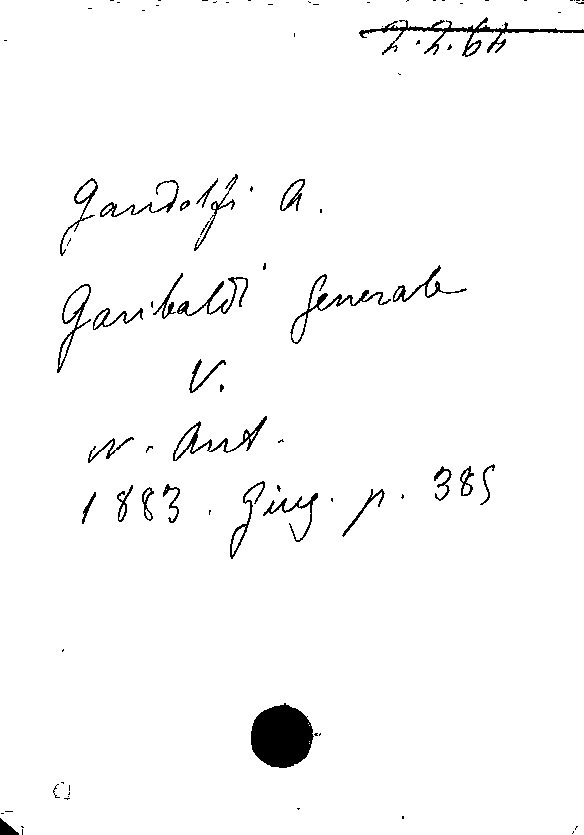 2.2.64
Gandolfi A.
Garibaldi generale
V.
N. Ant.
1883. Giug. p. 385